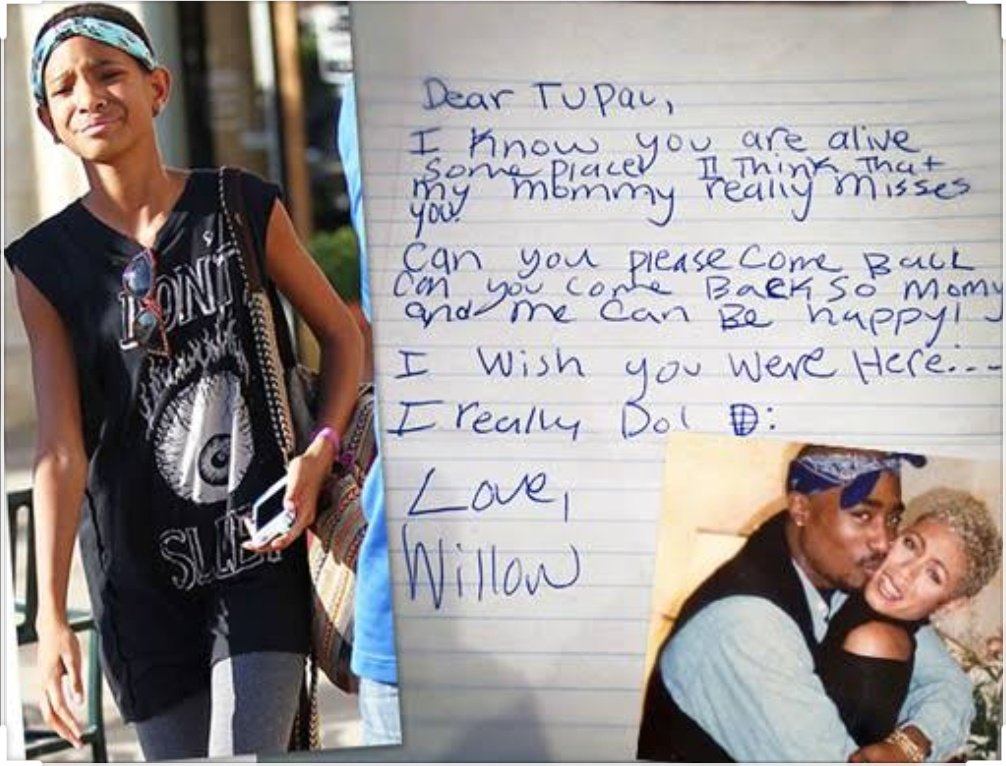 DON'T
SLEEP
Dear Tupac,
I Know you are alive
some place! I Think That
my mommy really misses
you!
Can you please come Back
Can you come Back so momy
and me can Be happy!
I Wish you Were Here...
I really Do! :
Love,
Willow